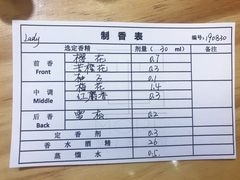 Lady 制香表 编号:190830
选定香精 剂量( 30 ml) 备注
前香 Front 樱花 0.7
苦橙花 0.3
柚子 0.1
中调 Middle 梅花 1.4
0.3
后香 Back 雪松 0.2
定香剂 0.3
香水酒精 26
蒸馏水 0.5